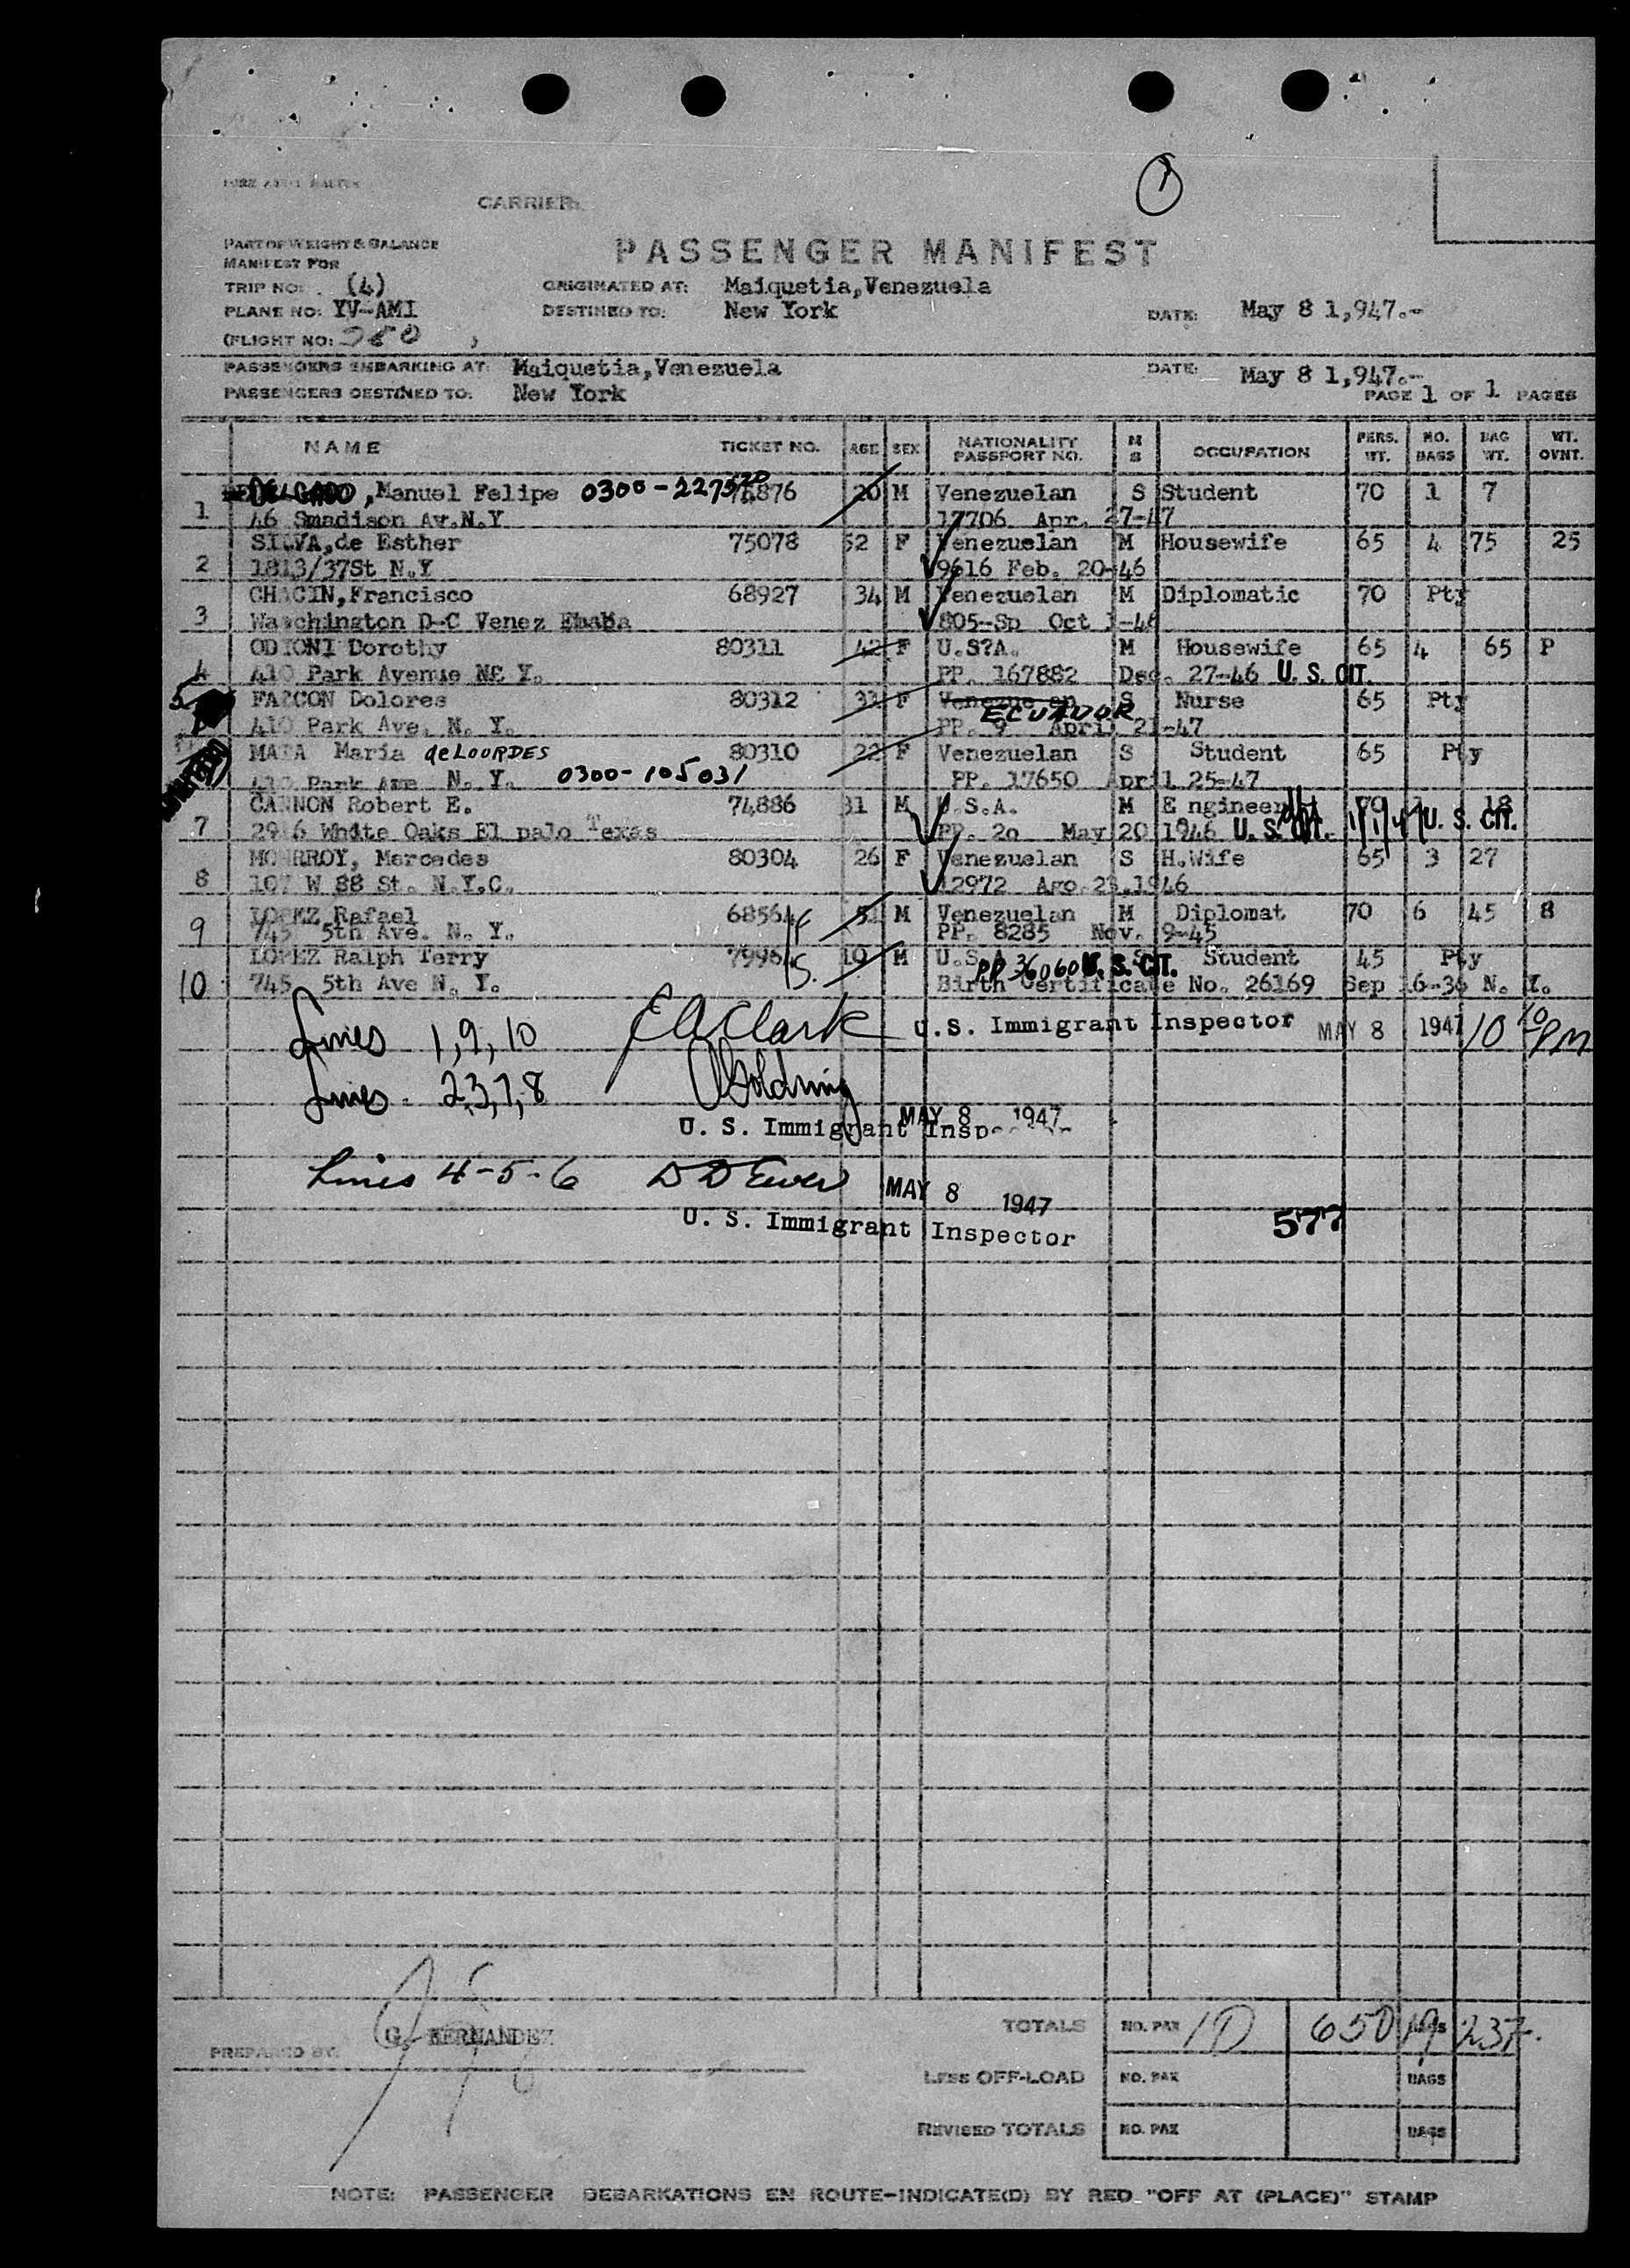 CARRIER:
PART OF WEIGHT & BALANCE
PASSENGER MANIFEST
MANIFEST FOR
TRIP NO: (4) ORIGINATED AT: Maiquetia,Venezuela
PLANE NO: YV-AMI DESTINED TO: New York DATE: May 8 1,947.-
(FLIGHT NO:
PASSENGERS EMBARKING AT: Maiquetia,Venezuela DATE: May 8 1,947.-
PASSENGERS DESTINED TO: New York PAGE 1 OF 1 PAGES
NAME TICKET NO. AGE SEX NATIONALITY PASSPORT NO. M S OCCUPATION PERS. WT. NO. BAGS BAG WT. WT. OVNT.
DELGADO ,Manuel Felipe 0300-227520 20 M Venezuelan S Student 70 1 7
1 46 Smadison Av.N.Y 17706 Apr. 27-47
SILVA,de Esther 75078 52 F Venezuelan M Housewife 65 4 75 25
2 1813/37St N.Y 9616 Feb. 20-46
CHACIN,Francisco 68927 34 M Venezuelan M Diplomatic 70 Pty
3 Waschington D-C Venez 805-Sp Oct 1-46
ODIONI Dorothy 80311 42 F U.S?A. M Housewife 65 4 65 P
4 410 Park Avenue PP. 167882 Dec. 27-46 U. S. CIT.
5 FALCON Dolores 80312 33 F S Nurse 65 Pty
ECUADOR
410 Park Ave. N. Y. PP. 9 April 21-47
MATA Maria de LOURDES 80310 22 F Venezuelan S Student 65 Pty
410 Park Ave N. Y. 0300-105031 PP. 17650 April 25-47
CANNON Robert E. 74886 31 M U.S.A. M E ngineer 70 18
7 2916 White Oaks El palo Texas PP. 20 May 20 1946 U. S. CIT. U. S. CIT.
MONRROY, Mercedes 80304 26 F Venezuelan S H.Wife 65 3 27
8 107 W 88 St. N.Y.C. 12972 Ago 23.1946
LOPEZ Rafael 68564 51 M Venezuelan M Diplomat 70 6 45 8
9 745 5th Ave. N. Y. PP. 8285 Nov. 9-45
LOPEZ Ralph Terry 7996 10 M U.S.A PP 36060 U. S. CIT. Student 45 Pty
10 745 5th Ave N. Y. Birth Certificate No. 26169 Sep 16-36 N. Y.
Lines 1,9,10 E A Clark U.S. Immigrant Inspector MAY 8 1947 10 10 PM
Lines - 2,3,7,8
MAY 8 1947
U. S. Immigrant Inspector
Lines 4-5-6 MAY 8 1947
U. S. Immigrant Inspector 577
TOTALS NO. PAX 10 650 19 BAGS 237-
PREPARED BY: G. HERNANDEZ
LESS OFF-LOAD NO. PAX BAGS
REVISED TOTALS NO. PAX BAGS
NOTE: PASSENGER DEBARKATIONS EN ROUTE-INDICATE(D) BY RED "OFF AT (PLACE)" STAMP